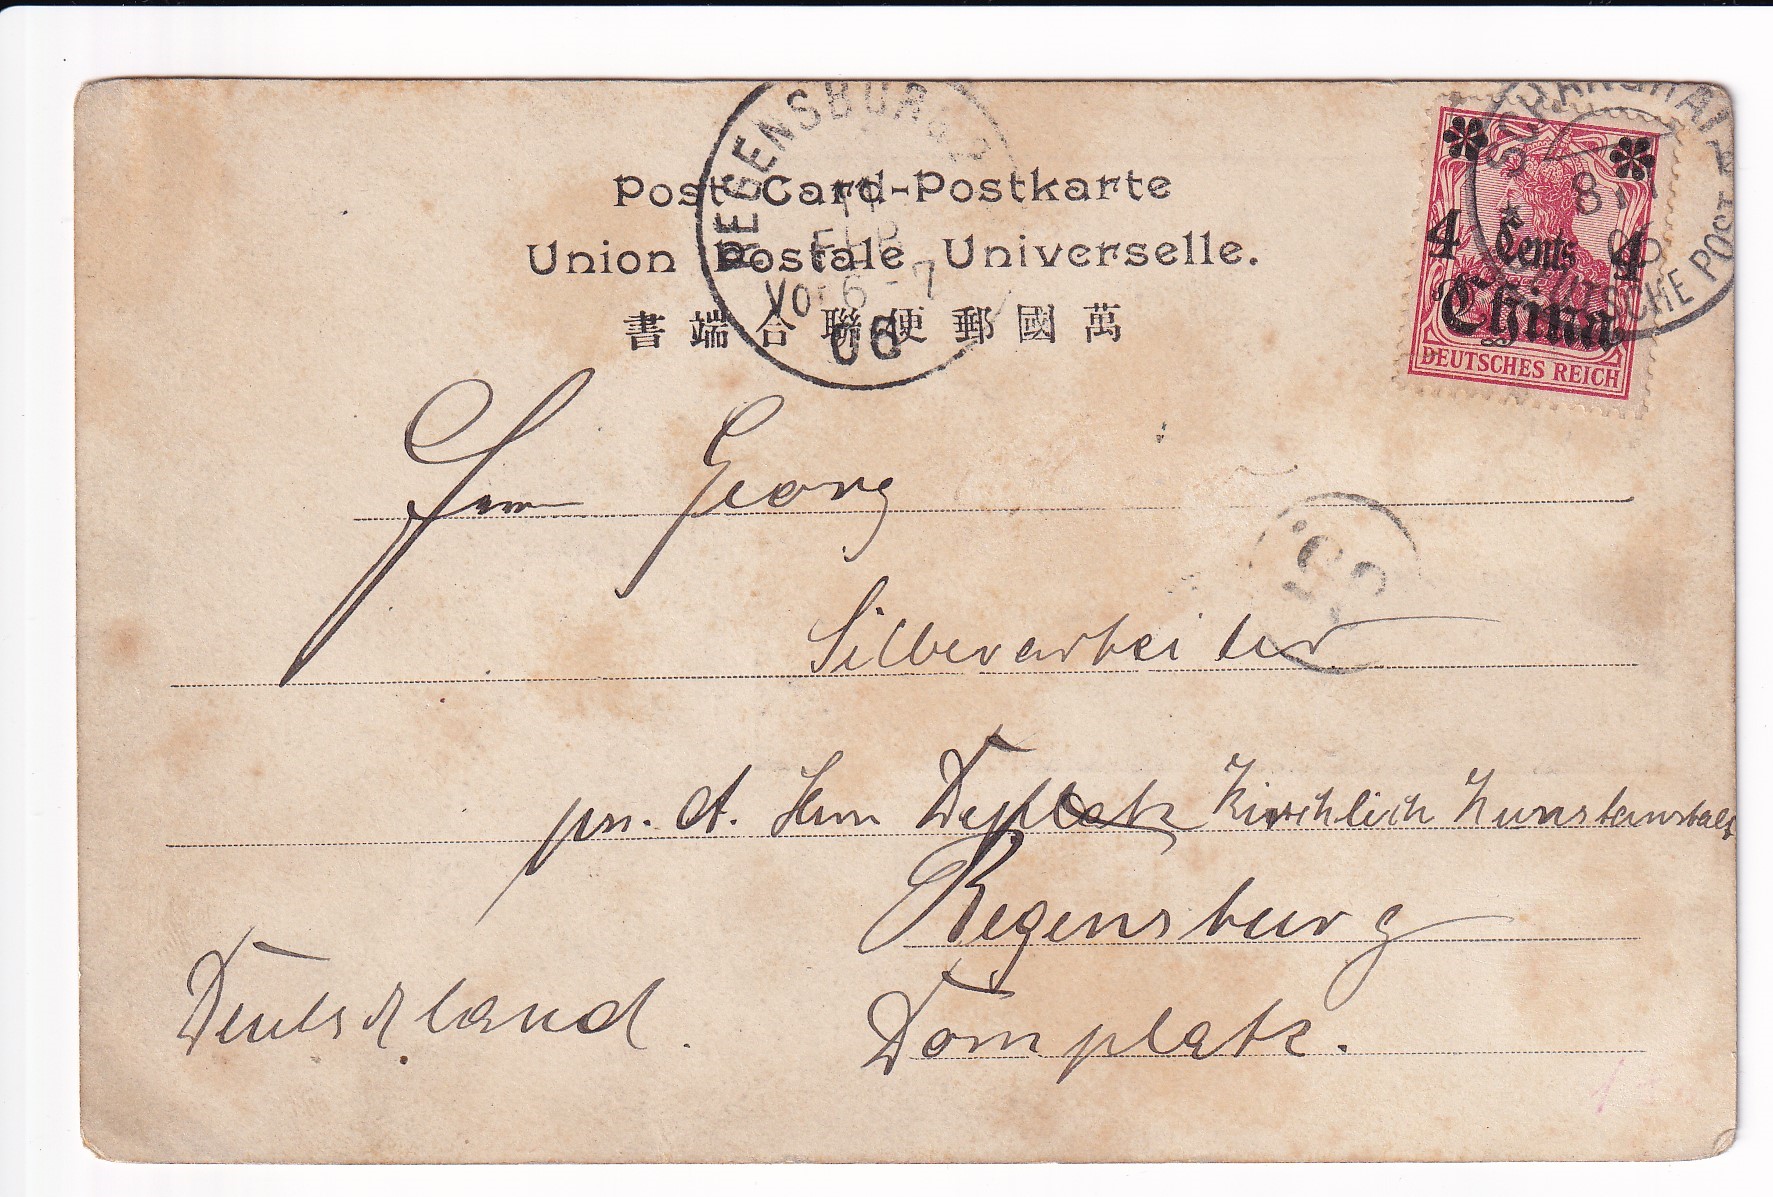 Post Card-Postkarte
Union Postale Universelle.
書端合聯便郵國萬
REGENSBURG 2
11
FEB
Vor 6-7
06
SCHANGHAI
8/1
06
DEUTSCHE POST
4 Cents 4
China
DEUTSCHES REICH
Herrn Georg
Silberarbeiter
pr. A. Herrn Kirchlich Kunstanstalt
Regensburg
Deutschland. Domplatz.